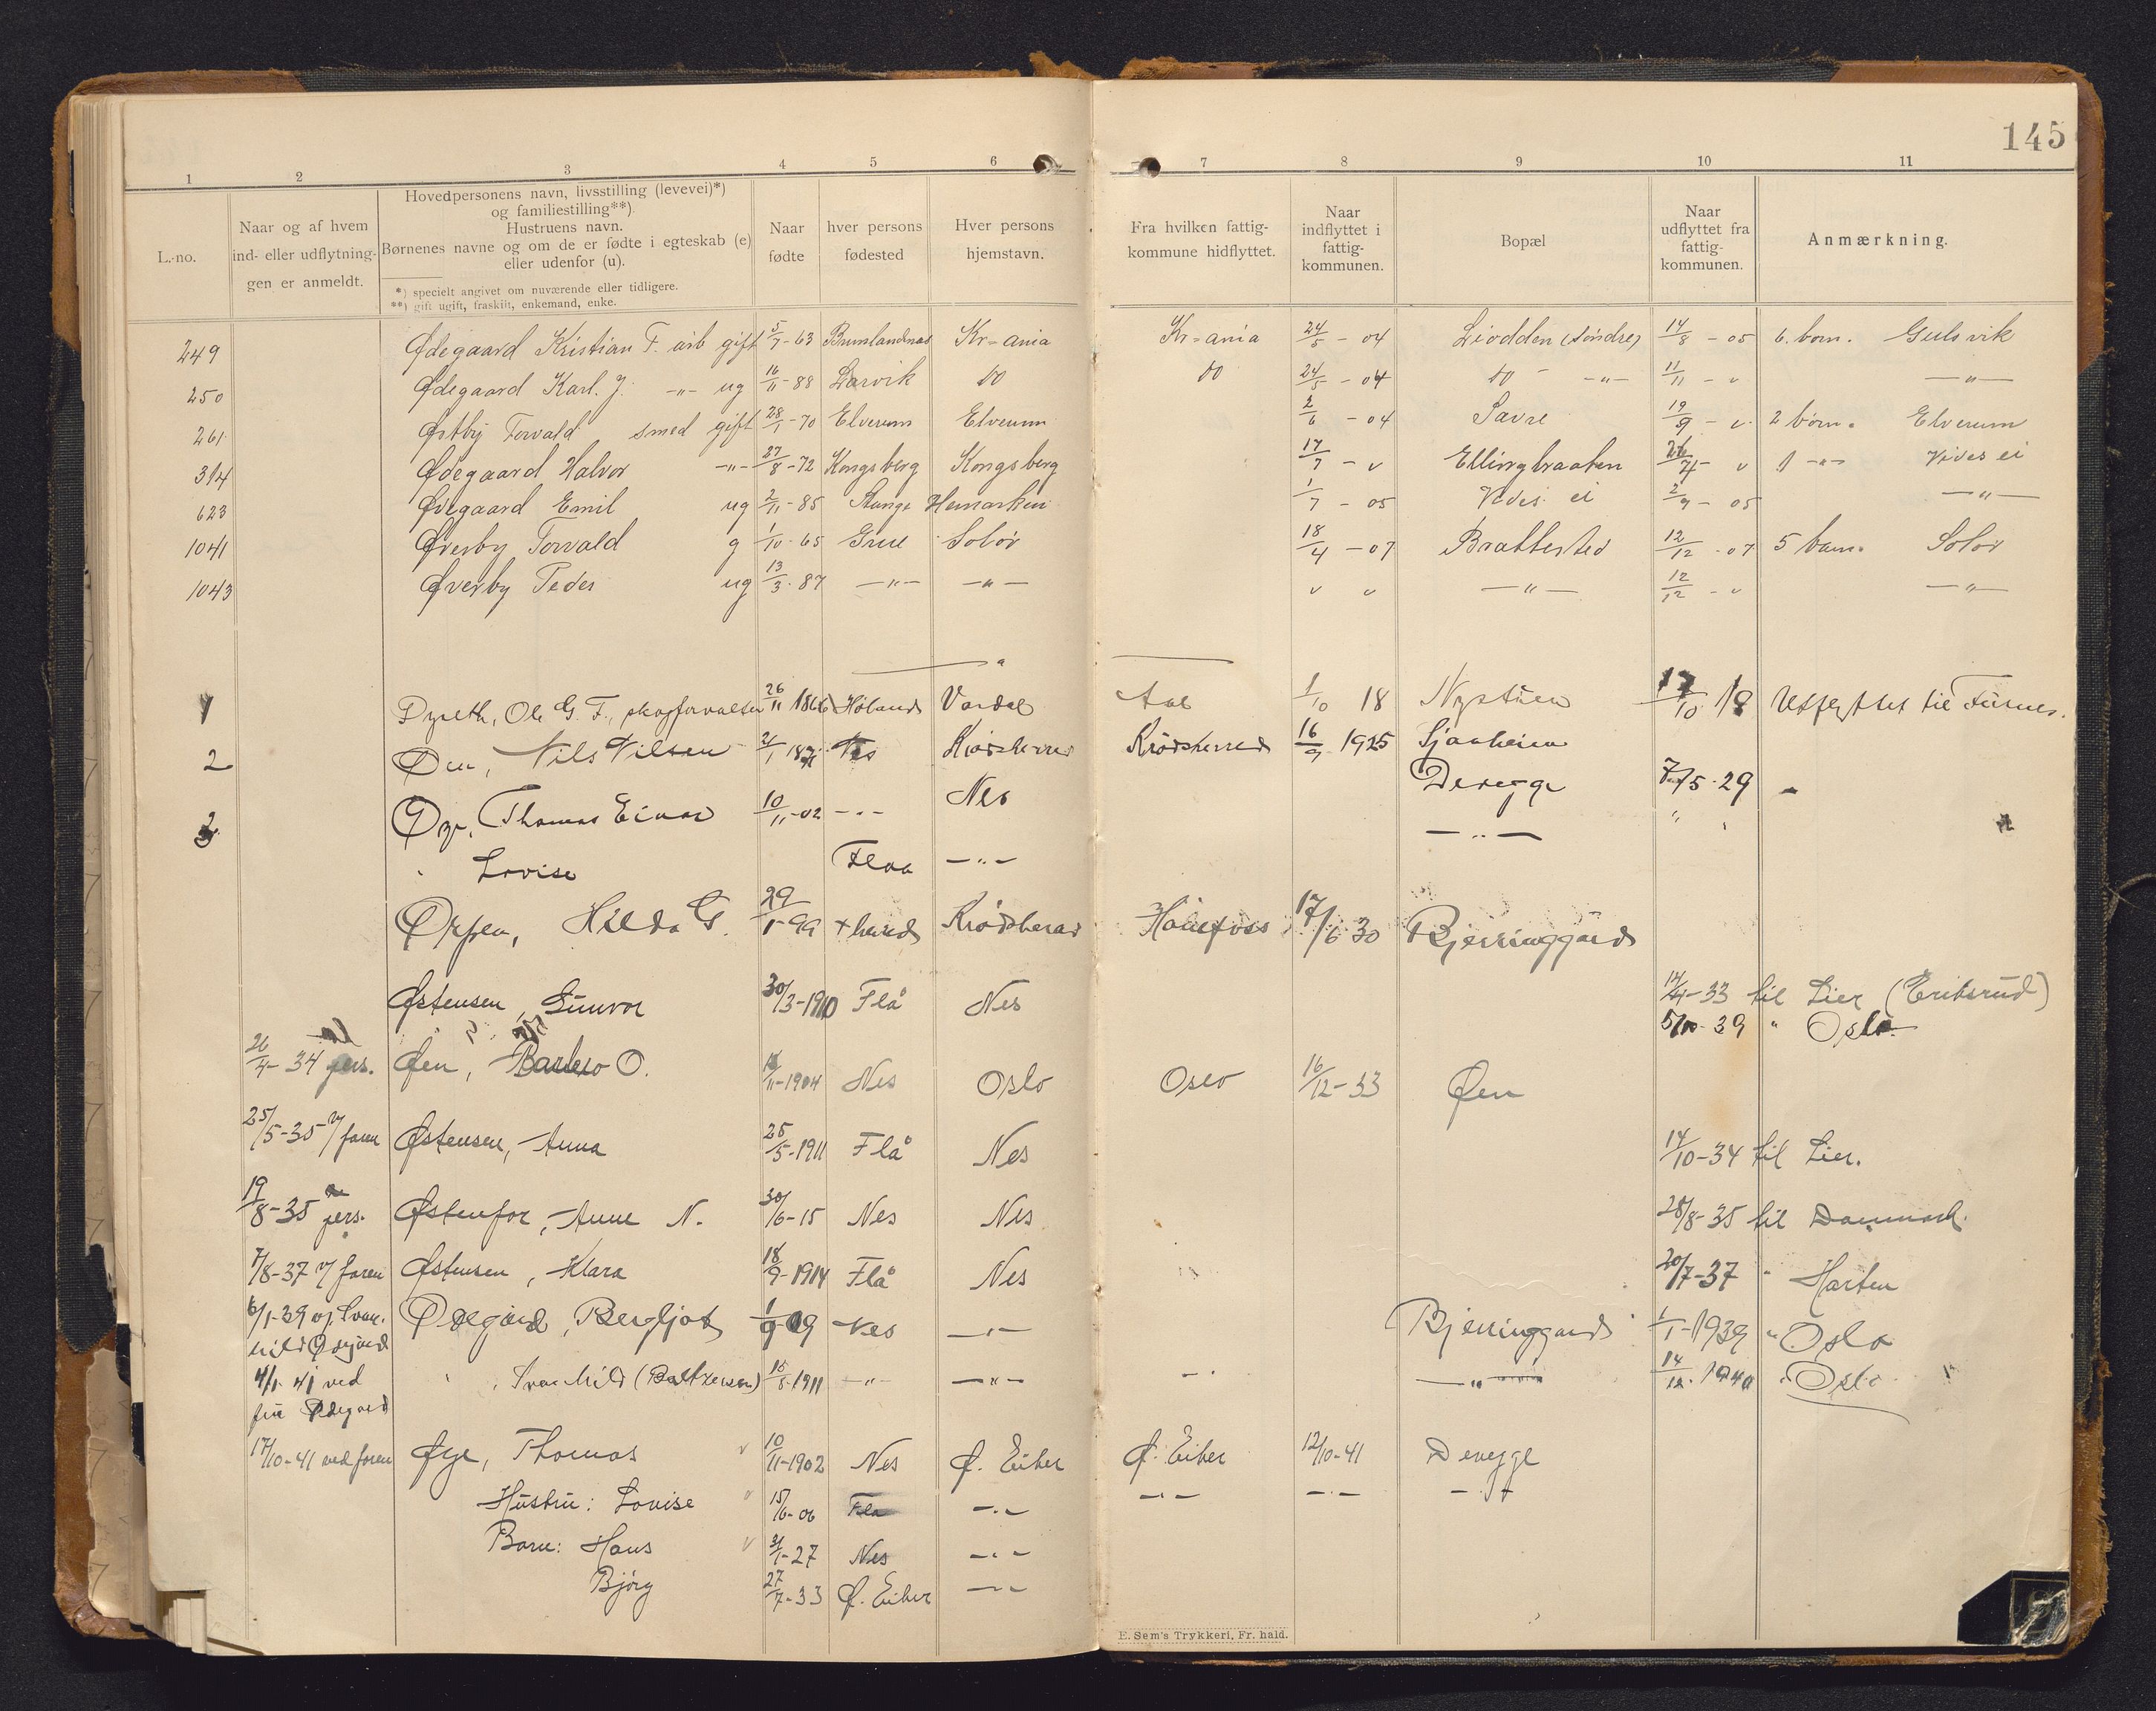 145
1 2 3 4 5 6 7 8 9 10 11
L.-no.
Naar og af hvem ind- eller udflytningen er anmeldt.
Hovedpersonens navn, livsstilling (levevei)*)
og familiestilling**)
Hustruens navn.
Børnenes navne og om de er fødte i egteskab (e)
eller udenfor (u).
*) specielt angivet om nuværende eller tidligere.
**) gift ugift, fraskilt, enkemand, enke.
Naar fødte
hver persons fødested
Hver persons hjemstavn.
Fra hvilken fattigkommune hidflyttet.
Naar indflyttet i fattigkommunen.
Bopæl
Naar udflyttet fra fattigkommunen.
Anmærkning.
249 Ødegaard Kristian F. arb gift 5/7-63 Brunlandnæs Kr-ania Kr-ania 24/5-04 Liodden (søndre) 14/8-05 6. born. Gulsvik
250 Ødegaard Karl. J. -"- ug 16/11-88 Larvik do do 24/5-04 do -"- 11/11-v -"-
261 Østby Torvald smed gift 28/1-70 Elverum Elverum 2/6-04 Savre 19/9-v. 2 børn. Elverum
314 Ødegaard Halvor -"- 27/8-72 Kongsberg Kongsberg 17/7-v Ellingbraaten v 1 -"- Vides ei
623 Ødegaard Emil ug 2/11-85 Stange Hemarken 1/7-05 Vides ei 2/9-05 -"-
1041 Øverby Torvald g 1/10-65 Grue Solør 18/4-07 Brattested 12/12-07 5 barn. Solør
1043 Øverby Peder ug 13/3-87 -"- -"- v v -"- 12/12-v -"-
1 Dyreth, Ole G. F., skogforvalter 26/11 1866 Høland Vardal Aal 1/10 18 Nystuen 17/10 18 Utflyttet til Furnes.
2 Øen, Nils Nilsen Nes Krødsherred Krødsherred 16/9 1925 Sjaaheim
3 Øye, Thomas Einar 10/11-02 -"- Nes Devegge 7/5-29 "
" Lovise Flaa -"- -"- "
Hilda G. 29/1-99 Krødsherad Hønefoss 17/6 30 Bjerringgård
Østensen, Gunvor 30/3-1910 Flå Nes 14/4-33 til Lier (Eriksrud)
5/10-39 " Oslo
26/4-34 pers. Øen, Barbro O. 11-1904 Nes Oslo Oslo 16/12-33 Øen
25/5-35 v/ faren Østensen, Anna 25/5-1911 Flå Nes 14/10-34 til Lier.
19/8-35 pers. Østenfor, Anne N. 30/6-15 Nes Nes 28/8-35 til Danmark.
7/8-37 v/ faren Østensen, Klara 18/9-1914 Flå Nes 20/7-37 " Horten
6/1-39 v/ Svanhild Ødegård Ødegård, Bergljot 1/9-09 Nes -"- Bjerringgård 1/1-1939 " Oslo
4/1-41 ved fru Ødegård " , Svanhild (Baltzersen) 15/8-1911 -"- -"- -"- -"- 14/12-1940 " Oslo
17/10-41 ved faren Øye, Thomas 10/11-1902 Nes Ø. Eiker Ø. Eiker 12/10-41 Devegge
Hustru: Lovise 15/6-06 Flå -"- -"- -"- -"-
Barn: Hans 1-27 Nes -"-
Bjørg 27/7-33 Ø. Eiker -"-
E. Sem's Trykkeri, Fr. hald.